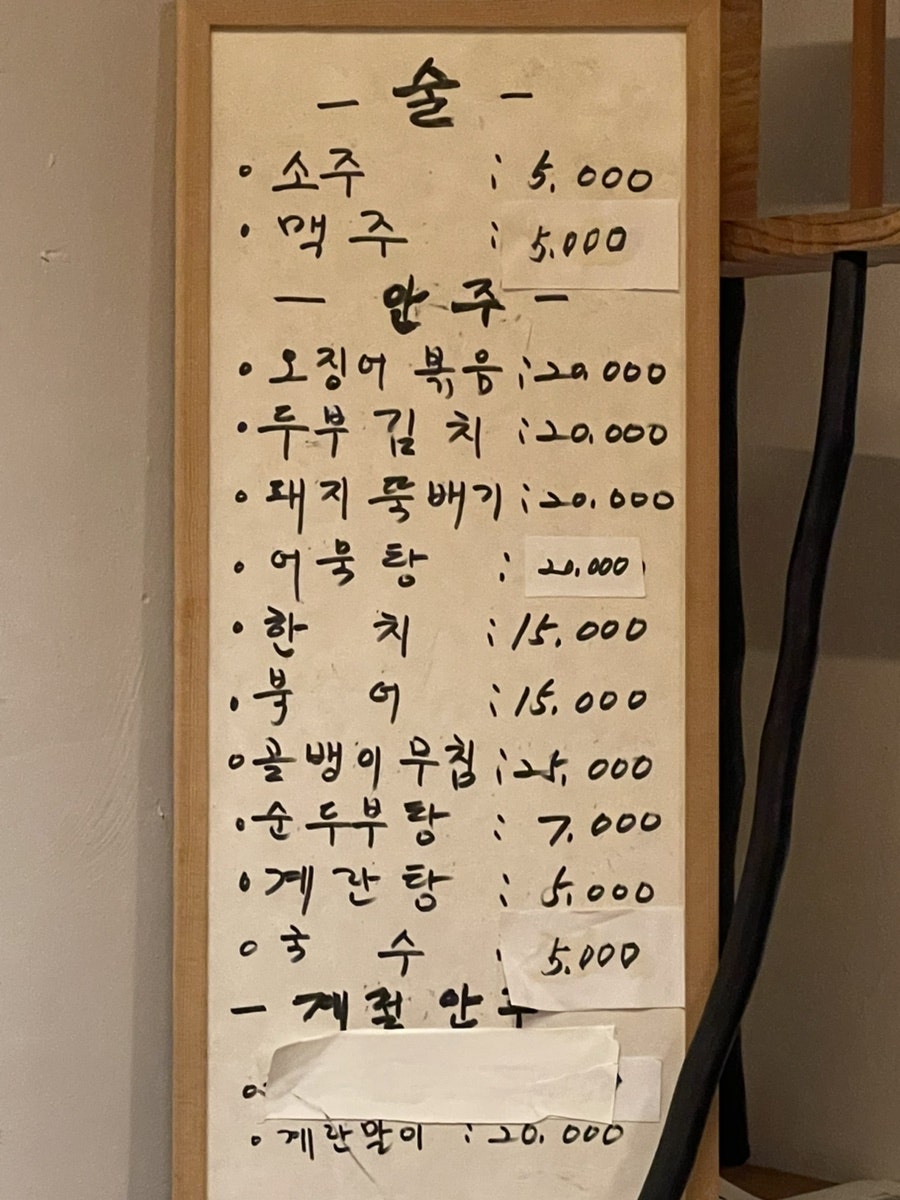 - 술 -
• 소주 : 5,000
• 맥주 : 5,000
- 안주 -
• 오징어 볶음 : 20,000
• 두부김치 : 20,000
• 돼지뚝배기 : 20,000
• 어묵탕 : 20,000
• 한치 : 15,000
• 북어 : 15,000
• 골뱅이무침 : 25,000
• 순두부탕 : 7,000
• 계란탕 : 5,000
• 국수 : 5,000
- 계절 안주
• 계란말이 : 20,000